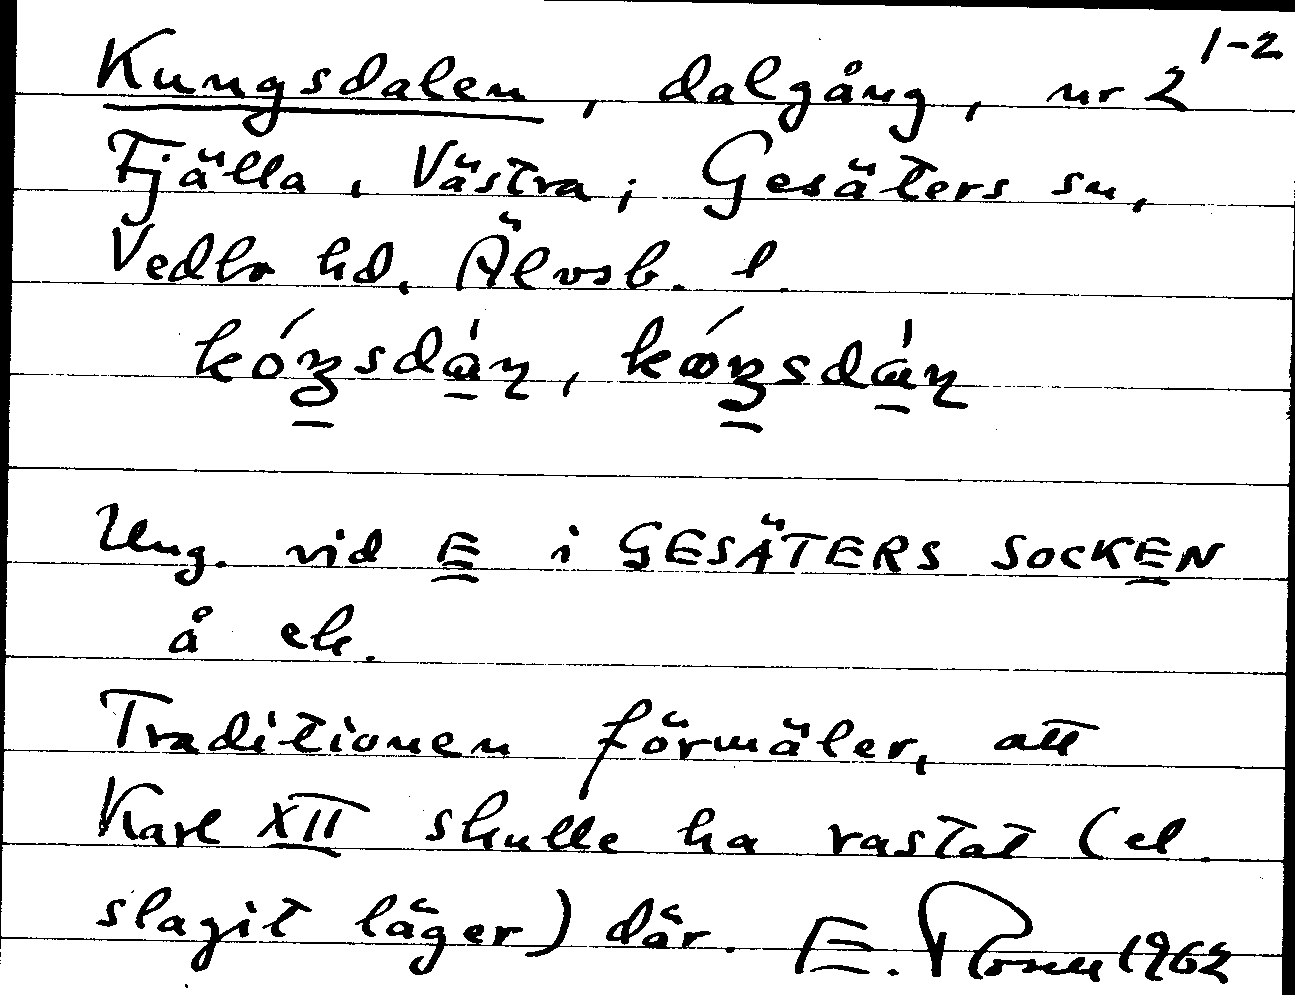 1-2
Kungsdalen, dalgång, nr 2
Fjälla, Västra; Gesäters sn,
Vedbo hd, Älvsb. l.
Ung. vid E i GESÄTERS SOCKEN
å ek.
Traditionen förmäler, att
Karl XII skulle ha rastat (el.
slagit läger) där. E. 1962